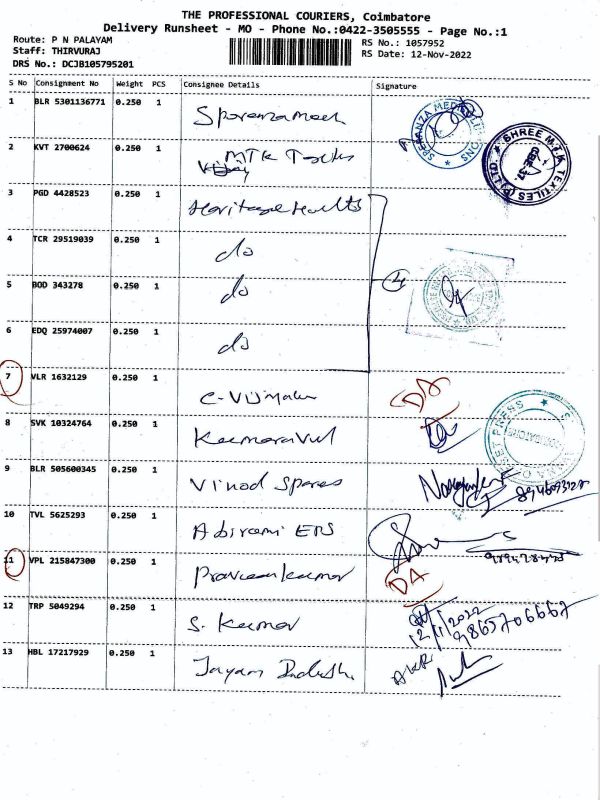 THE PROFESSIONAL COURIERS, Coimbatore
Delivery Runsheet - MO - Phone No.:0422-3505555 - Page No.:1
Route: P N PALAYAM
Staff: THIRVURAJ
DRS No.: DCJB105795201
RS No.: 1057952
RS Date: 12-Nov-2022
S No Consignment No Weight PCS Consignee Details Signature
1 BLR 5301136771 0.250 1
2 KVT 2700624 0.250 1 MTK
SHREE M.T.K TEXTILES (P) LTD.
3 PGD 4428523 0.250 1
4 TCR 29519039 0.250 1 do
5 BOD 343278 0.250 1 do
4
6 EDQ 25974007 0.250 1 do
7 VLR 1632129 0.250 1 DA
8 SVK 10324764 0.250 1 Kumaravel
9 BLR 505600345 0.250 1 Vinod Spares
10 TVL 5625293 0.250 1 Abirami EPS
11 VPL 215847300 0.250 1 Praveenkumar DA
12 TRP 5049294 0.250 1 S. Kumar
12/11/2022
9865706667
13 HBL 17217929 0.250 1 Jayam